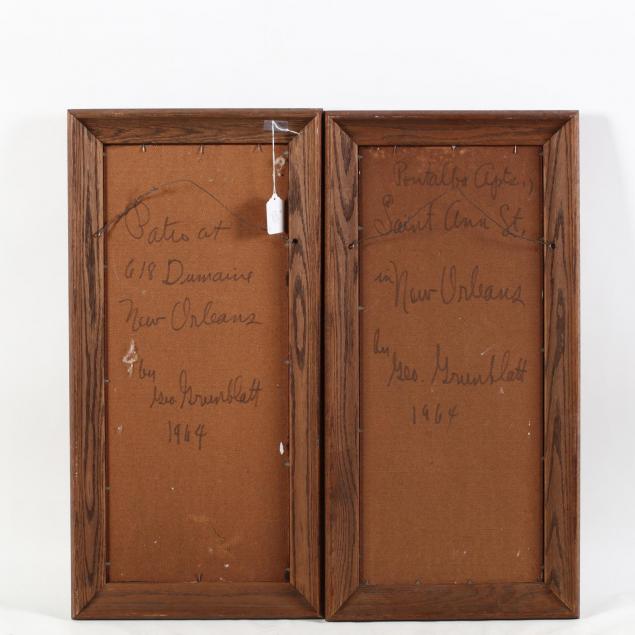 Patio at
618 Dumaine
New Orleans
by
Geo. Grunblatt
1964
Pontalba Apts.,
Saint Ann St.
in New Orleans
by
Geo. Grunblatt
1964